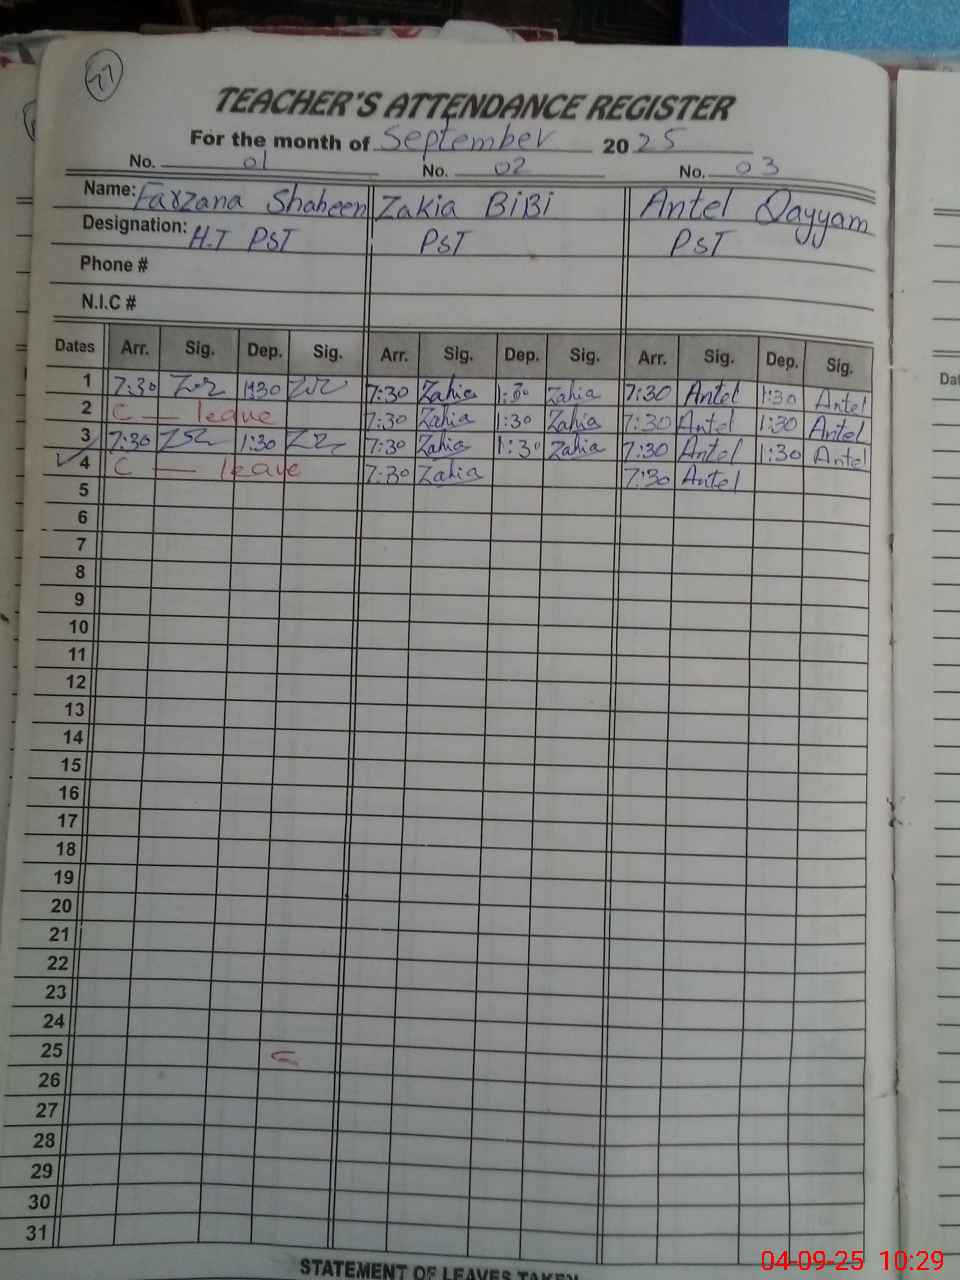 77
TEACHER'S ATTENDANCE REGISTER
For the month of September 2025
No. 01 No. 02 No. 03
Name: Farzana Shaheen Zakia BiBi Antel Qayyam
Designation: H.T PST PST PST
Phone #
N.I.C #
Dates Arr. Sig. Dep. Sig. Arr. Sig. Dep. Sig. Arr. Sig. Dep. Sig.
1 7:30 1:30 7:30 Zakia 1:30 Zakia 7:30 Antel 1:30 Antel
2 C — leave 7:30 Zakia 1:30 Zakia 7:30 Antel 1:30 Antel
3 7:30 1:30 7:30 Zakia 1:30 Zakia 7:30 Antel 1:30 Antel
4 C — leave 7:30 Zakia 7:30 Antel
5
6
7
8
9
10
11
12
13
14
15
16
17
18
19
20
21
22
23
24
25
26
27
28
29
30
31
STATEMENT OF LEAVES TAKEN
04-09-25 10:29